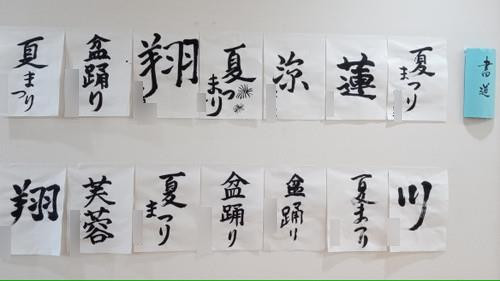 書道
夏まつり
蓮
涼
夏まつり
翔
盆踊り
夏まつり
川
夏まつり
盆踊り
盆踊り
夏まつり
芙蓉
翔